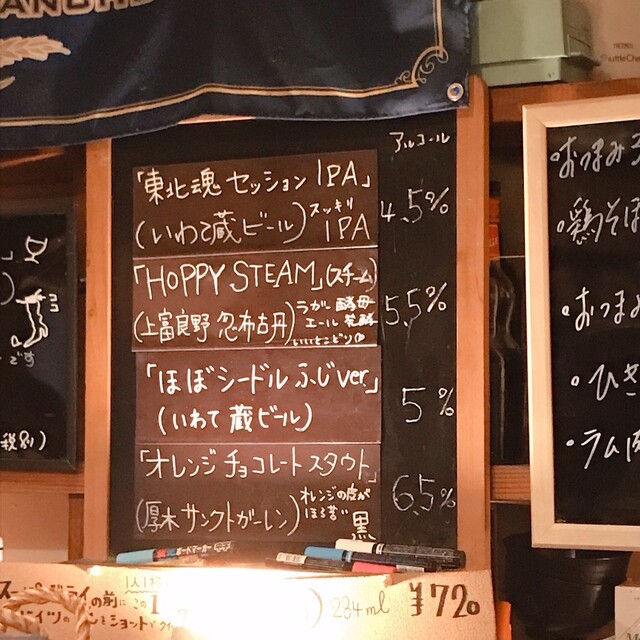 アルコール
「東北魂セッションIPA」
(いわて蔵ビール)スッキリIPA
4.5%
「HOPPY STEAM」(スチーム)
(上富良野 忽布古丹)
ラガー酵母
エール発酵
いいとこどり
5.5%
「ほぼシードルふじver.」
(いわて蔵ビール)
5%
「オレンジチョコレートスタウト」
(厚木サンクトガーレン)
オレンジの皮が
ほろ苦
黒
6.5%
ボードマーカー
284ml ¥720
の前に この
です
税別)
・おつまみ
・鶏そぼ
・おつまみ
・ひき
・ラム肉